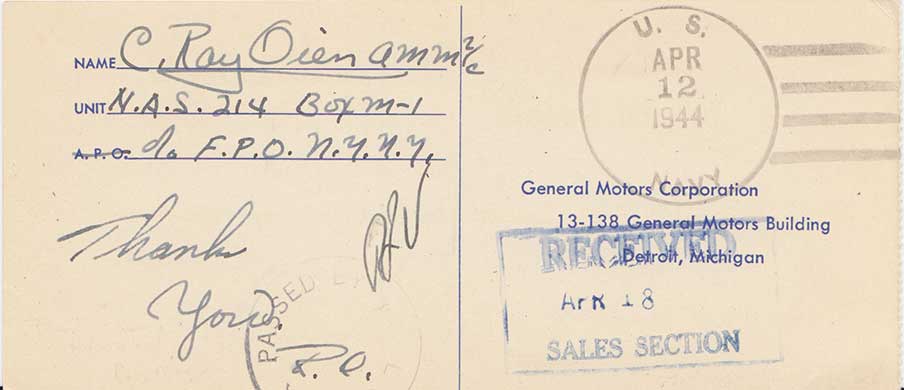 NAME C. Ray Oien amm 2/c
UNIT N.A.S. 214 Box M-1
A.P.O. c/o F.P.O. N.Y. N.Y.
Thank
You
R.O.
PASSED
U. S.
APR
12
1944
NAVY
General Motors Corporation
13-138 General Motors Building
Detroit, Michigan
RECEIVED
APR 18
SALES SECTION